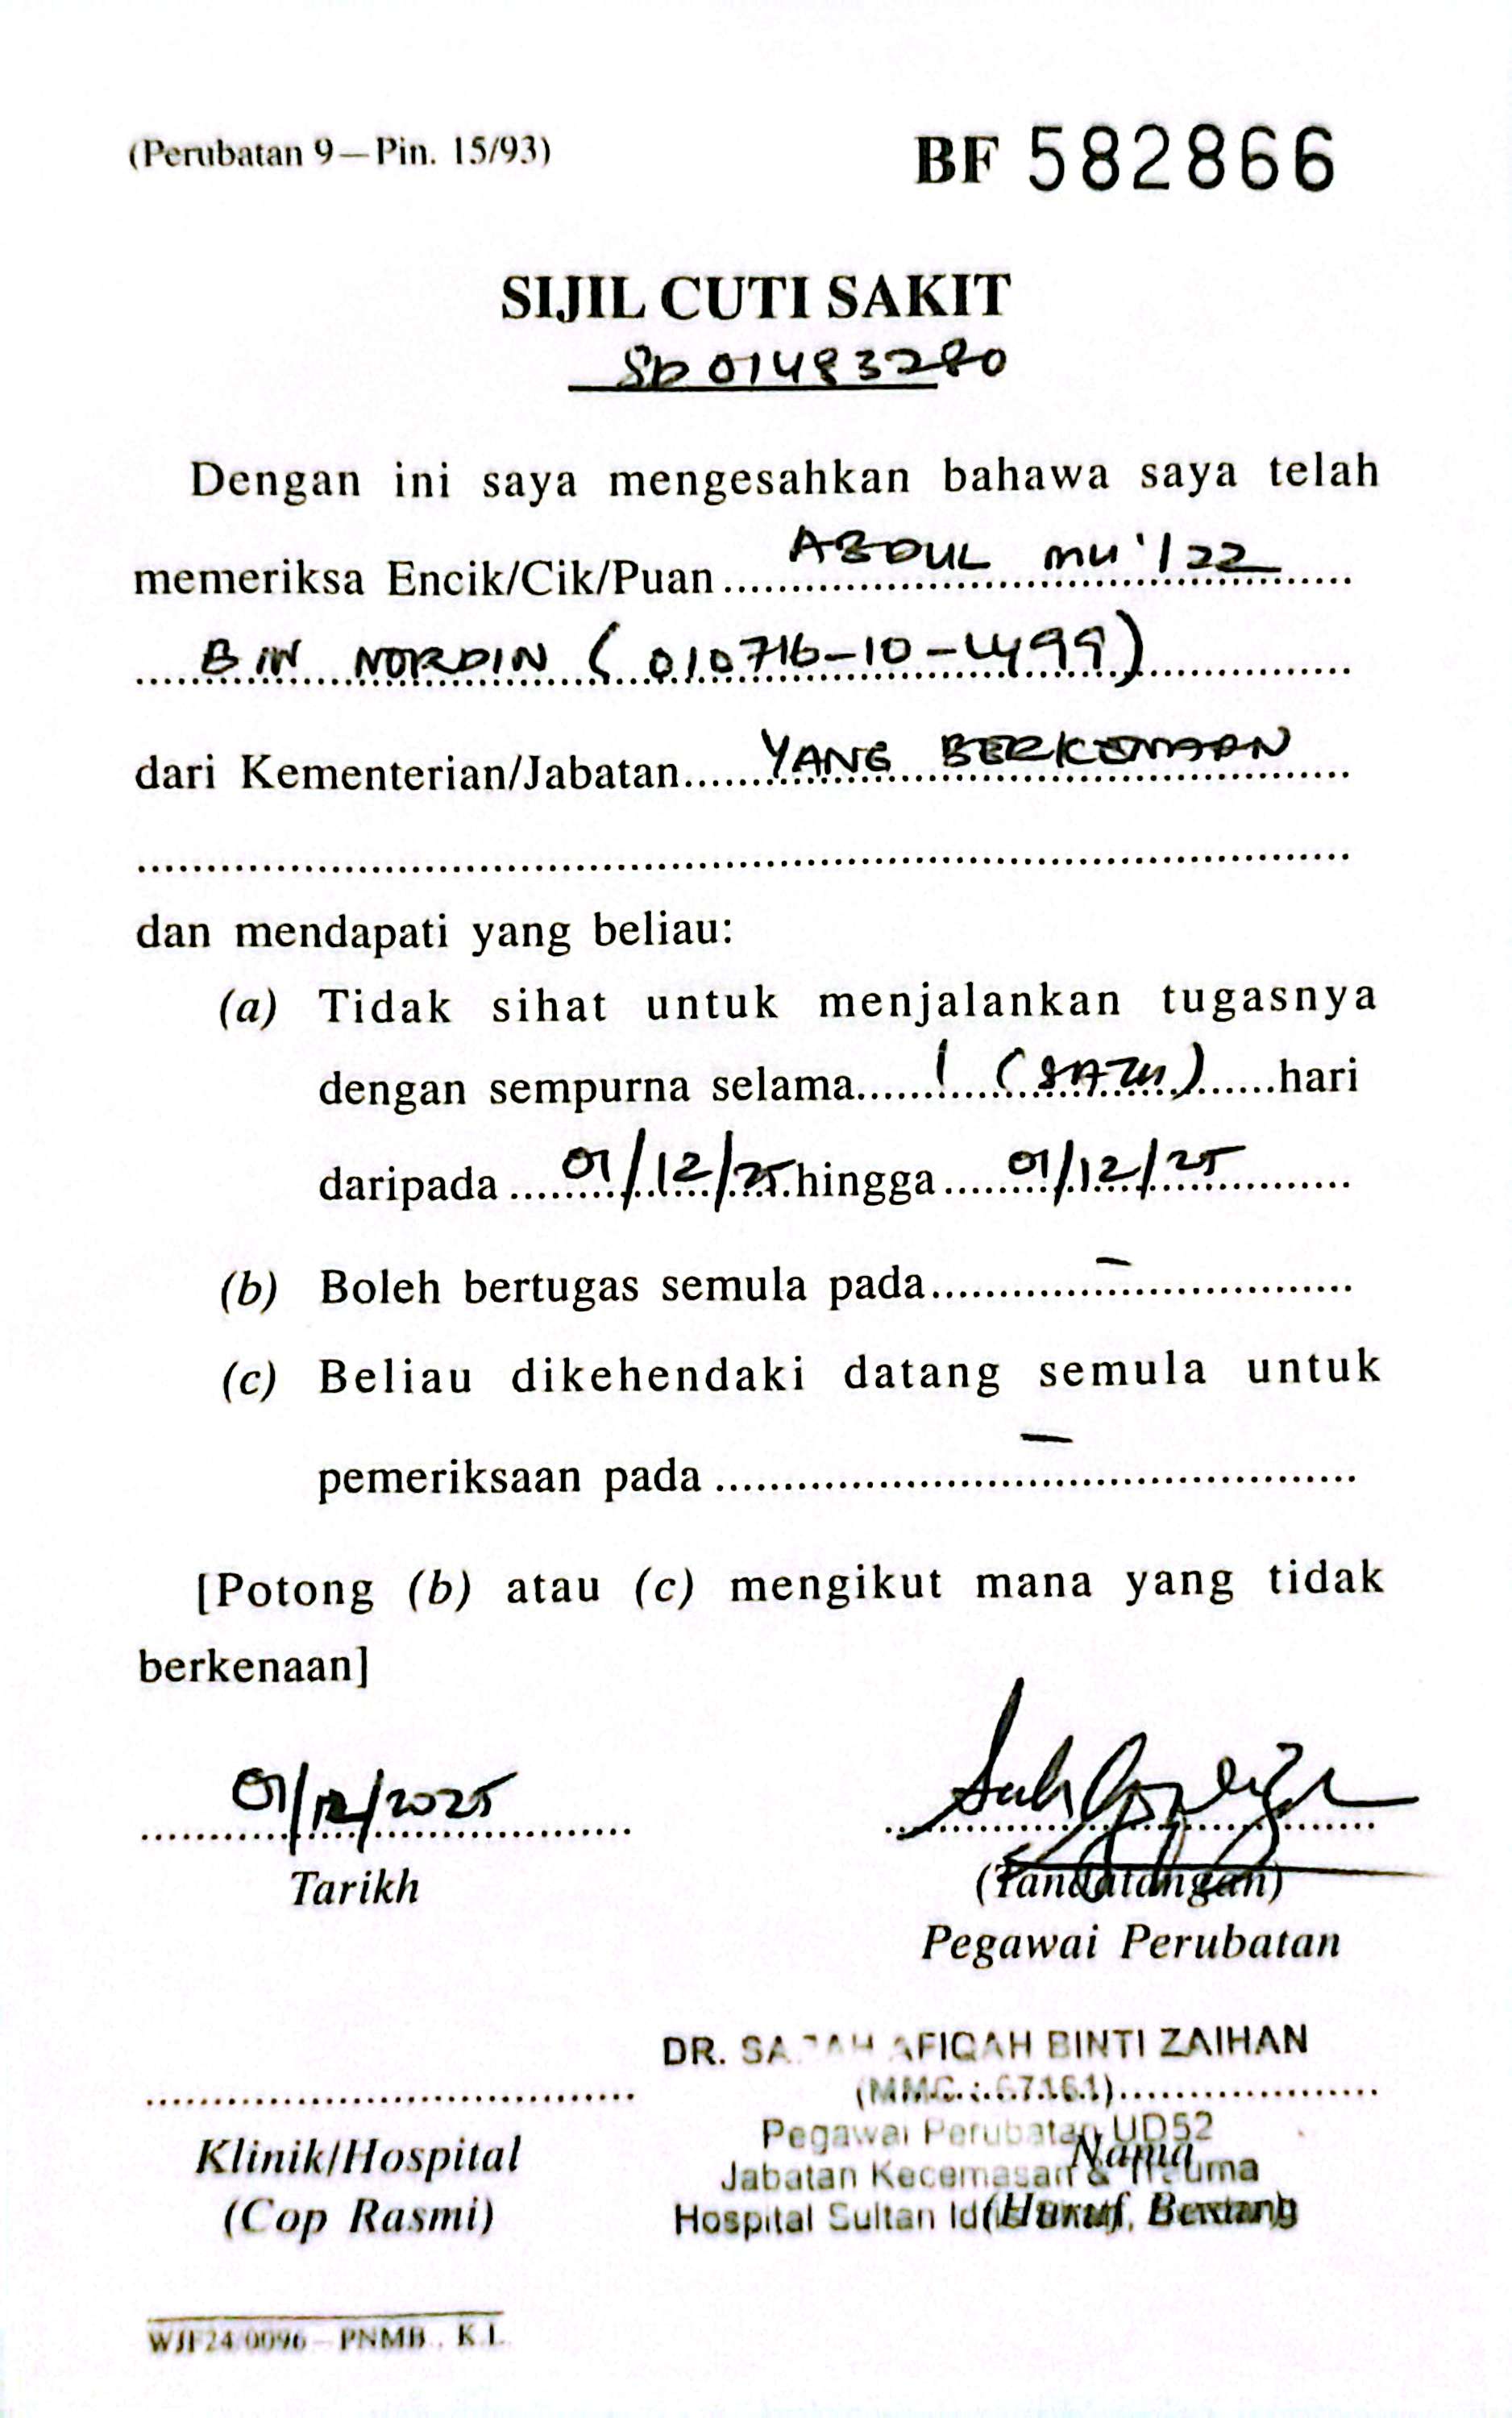 (Perubatan 9—Pin. 15/93)
BF 582866
SIJIL CUTI SAKIT
SD01483280
Dengan ini saya mengesahkan bahawa saya telah
memeriksa Encik/Cik/Puan ABDUL MU'IZZ
BIN NORDIN (010716-10-4499)
dari Kementerian/Jabatan YANG BERKENAAN
dan mendapati yang beliau:
(a) Tidak sihat untuk menjalankan tugasnya
dengan sempurna selama 1 (SATU) hari
daripada 01/12/25 hingga 01/12/25
(b) Boleh bertugas semula pada –
(c) Beliau dikehendaki datang semula untuk
pemeriksaan pada –
[Potong (b) atau (c) mengikut mana yang tidak
berkenaan]
01/12/2025
Tarikh
(Tandatangan)
Pegawai Perubatan
DR. AFIQAH BINTI ZAIHAN
(MMC : 67161)
Pegawai Perubatan UD52
Nama
Jabatan Kecemasan & Trauma
Hospital Sultan
(Huruf Besar)
Klinik/Hospital
(Cop Rasmi)
WJF24/0096—PNMB., K.L.